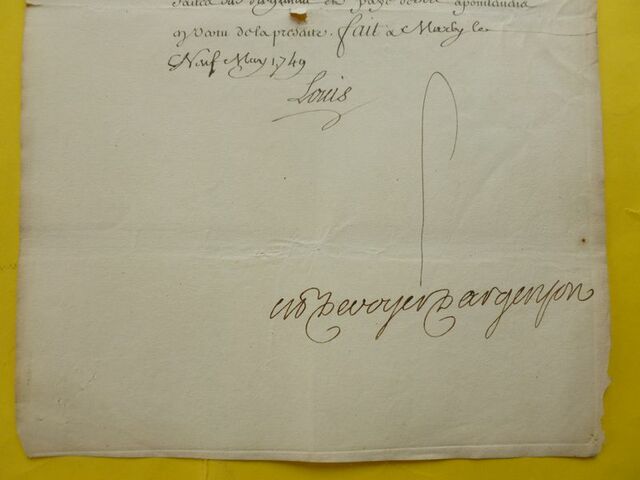 et payé
en vertu de la presente. fait a Marly le
Neuf May 1749
Louis
M P de voyer Dargenson